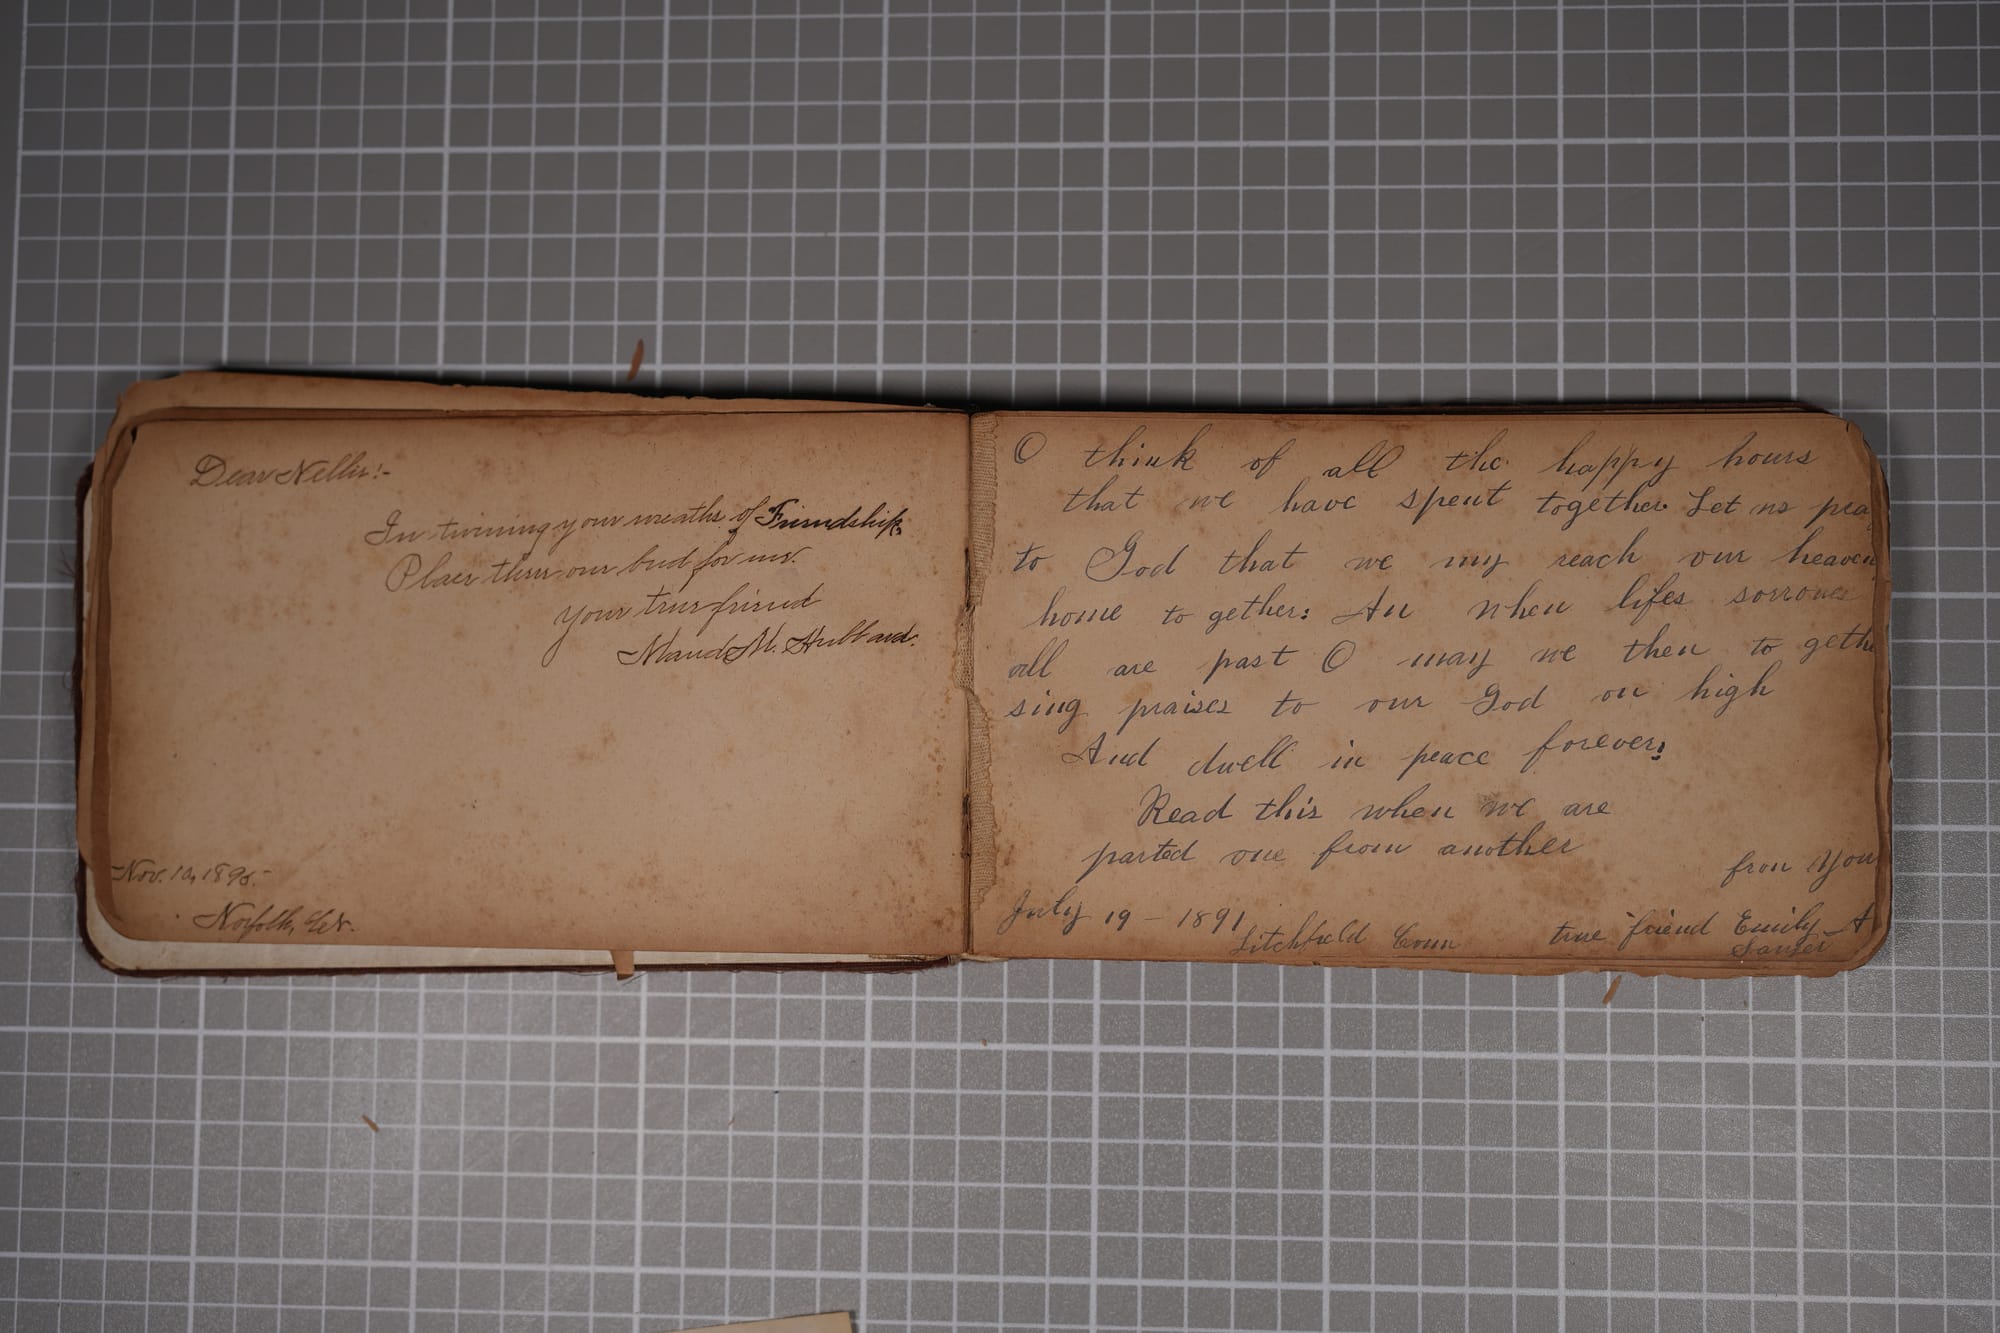 Dear Nellie:-
In twining your wreaths of Friendship,
Place there one bud for me.
Your true friend
Maud M. Hubbard.
Nov. 10, 1890.-
Norfolk, Ct.
O think of all the happy hours
that we have spent together. Let us pray
to God that we my reach our heaven
home to gether: An when lifes sorrows
all are past O may we then to geth
sing praises to our God on high
And dwell in peace forever:
Read this when we are
parted one from another
from Your
July 19 - 1891
Litchfield Conn
true friend Emily A